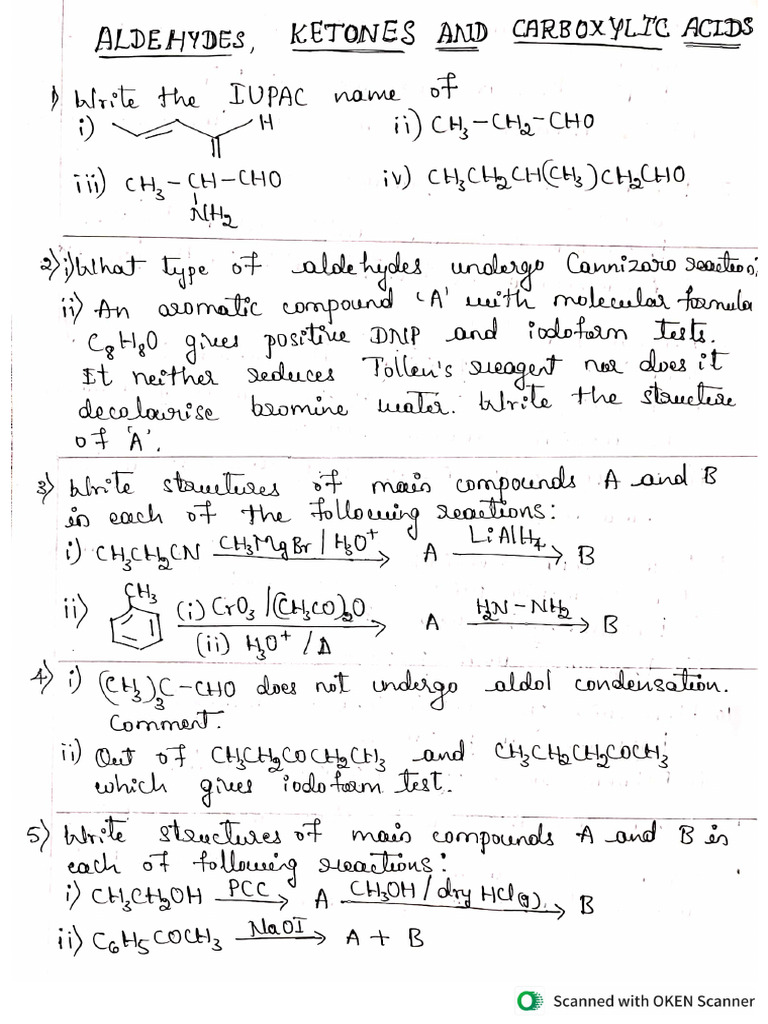 ALDEHYDES, KETONES AND CARBOXYLIC ACIDS
1) Write the IUPAC name of
i) H ii) CH3-CH2-CHO
iii) CH3-CH-CHO iv) CH3CH2CH(CH3)CH2CHO
NH2
2) i) What type of aldehydes undergo Cannizaro reaction?
ii) An aromatic compound 'A' with molecular formula
C8H8O gives positive DNP and iodoform tests.
It neither reduces Tollen's reagent nor does it
decolourise bromine water. Write the structure
of 'A'.
3) Write structures of main compounds A and B
in each of the following reactions:
i) CH3CH2CN CH3MgBr/H3O+ A LiAlH4 B
CH3
ii) (i) CrO3/(CH3CO)2O A H2N-NH2 B
(ii) H3O+/Δ
4) i) (CH3)3C-CHO does not undergo aldol condensation.
Comment.
ii) Out of CH3CH2COCH2CH3 and CH3CH2CH2COCH3
which gives iodoform test.
5) Write structures of main compounds A and B in
each of following reactions:
i) CH3CH2OH PCC A CH3OH/dry HCl(g) B
ii) C6H5COCH3 NaOI A + B
Scanned with OKEN Scanner